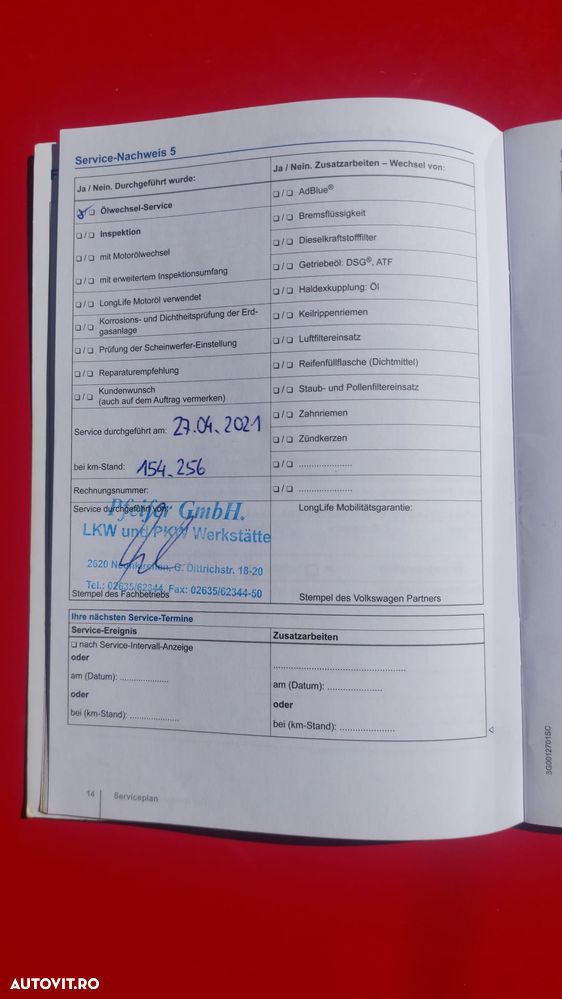 Service-Nachweis 5
Ja / Nein. Durchgeführt wurde:
☒ ❑ Ölwechsel-Service
❑ / ❑ Inspektion
❑ / ❑ mit Motorölwechsel
❑ / ❑ mit erweitertem Inspektionsumfang
❑ / ❑ LongLife Motoröl verwendet
❑ / ❑ Korrosions- und Dichtheitsprüfung der Erd-
gasanlage
❑ / ❑ Prüfung der Scheinwerfer-Einstellung
❑ / ❑ Reparaturempfehlung
❑ / ❑ Kundenwunsch
(auch auf dem Auftrag vermerken)
Service durchgeführt am: 27.04.2021
bei km-Stand: 154.256
Rechnungsnummer:
Service durchgeführt von:
Pfeifer GmbH.
LKW und PKW Werkstätte
2620 Neunkirchen, G. Dittrichstr. 18-20
Tel.: 02635/62344, Fax: 02635/62344-50
Stempel des Fachbetriebs
Ja / Nein. Zusatzarbeiten – Wechsel von:
❑ / ❑ AdBlue®
❑ / ❑ Bremsflüssigkeit
❑ / ❑ Dieselkraftstofffilter
❑ / ❑ Getriebeöl: DSG®, ATF
❑ / ❑ Haldexkupplung: Öl
❑ / ❑ Keilrippenriemen
❑ / ❑ Luftfiltereinsatz
❑ / ❑ Reifenfüllflasche (Dichtmittel)
❑ / ❑ Staub- und Pollenfiltereinsatz
❑ / ❑ Zahnriemen
❑ / ❑ Zündkerzen
❑ / ❑ .....................
❑ / ❑ .....................
LongLife Mobilitätsgarantie:
Stempel des Volkswagen Partners
Ihre nächsten Service-Termine
Service-Ereignis
❑ nach Service-Intervall-Anzeige
oder
am (Datum): ....................
oder
bei (km-Stand): ....................
Zusatzarbeiten
.....................................................
am (Datum): ......................
oder
bei (km-Stand): ......................
14 Serviceplan
3G0012701SC
AUTOVIT.RO